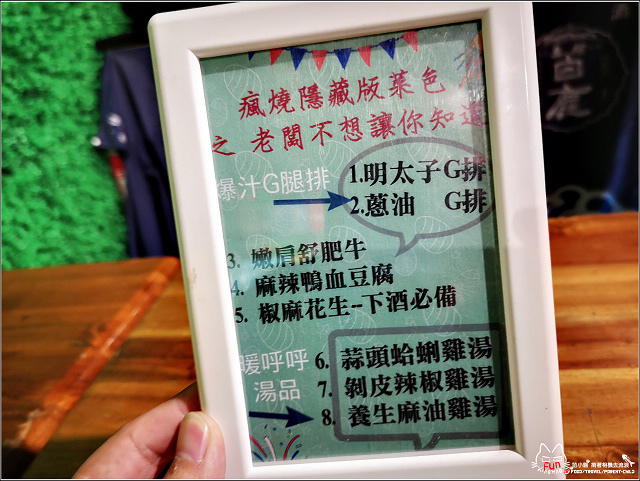 瘋燒隱藏版菜色
之 老闆不想讓你知道
爆汁G腿排
1.明太子G排
2.蔥油 G排
3. 嫩肩舒肥牛
4. 麻辣鴨血豆腐
5. 椒麻花生--下酒必備
暖呼呼
湯品
6. 蒜頭蛤蜊雞湯
7. 剝皮辣椒雞湯
8. 養生麻油雞湯
FOOD/TRAVEL/PARENT-CHILD